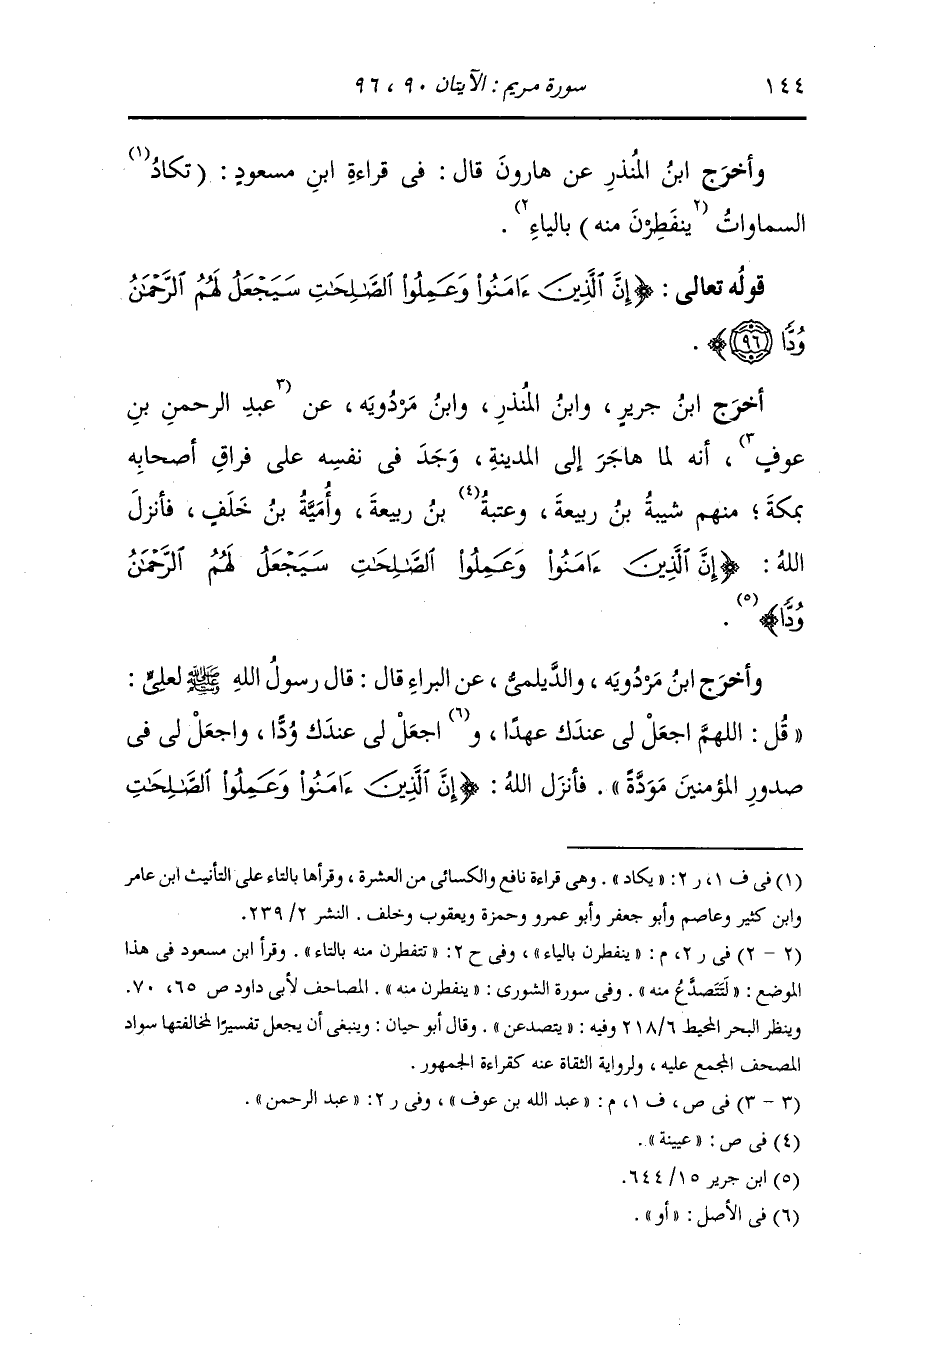 ١٤٤ سورة مريم : الآيتان ٩٠ ، ٩٦
وأخرَج ابنُ المُنذرِ عن هارونَ قال : فى قراءةِ ابنِ مسعودٍ : ( تكادُ(١)
السماواتُ (٢ينفَطِرْنَ منه ) بالياءِ٢) .
قولُه تعالى : ﴿إِنَّ ٱلَّذِينَ ءَامَنُوا۟ وَعَمِلُوا۟ ٱلصَّـٰلِحَـٰتِ سَيَجْعَلُ لَهُمُ ٱلرَّحْمَـٰنُ
وُدًّا ﴿٩٦﴾﴾ .
أخرَج ابنُ جريرٍ ، وابنُ المُنذرِ ، وابنُ مَرْدُويَه ، عن (٣عبدِ الرحمنِ بنِ
عوفٍ٣) ، أنه لما هاجَرَ إلى المدينةِ ، وَجَدَ فى نفسِه على فراقِ أصحابِه
بمكةَ ؛ منهم شيبةُ بنُ ربيعةَ ، وعتبةُ(٤) بنُ ربيعةَ ، وأُمَيَّةُ بنُ خَلَفٍ ، فأنزلَ
اللهُ : ﴿إِنَّ ٱلَّذِينَ ءَامَنُوا۟ وَعَمِلُوا۟ ٱلصَّـٰلِحَـٰتِ سَيَجْعَلُ لَهُمُ ٱلرَّحْمَـٰنُ
وُدًّا﴾(٥) .
وأخرَج ابنُ مَرْدُويَه ، والدَّيلميُّ ، عن البراءِ قال : قال رسولُ اللهِ ﷺ لعلىٍّ :
« قُل : اللهمَّ اجعَلْ لى عندَك عهدًا ، و(٦) اجعَلْ لى عندَك وُدًّا ، واجعَلْ لى فى
صدورِ المؤمنينَ مَوَدَّةً » . فأنزَل اللهُ : ﴿إِنَّ ٱلَّذِينَ ءَامَنُوا۟ وَعَمِلُوا۟ ٱلصَّـٰلِحَـٰتِ
(١) فى ف ١، ر ٢: « يكاد » . وهى قراءة نافع والكسائى من العشرة ، وقرأها بالتاء على التأنيث ابن عامر
وابن كثير وعاصم وأبو جعفر وأبو عمرو وحمزة ويعقوب وخلف . النشر ٢/ ٢٣٩.
(٢ - ٢) فى ر ٢، م : « ينفطرن بالياء » ، وفى ح ٢: « تتفطرن منه بالتاء » . وقرأ ابن مسعود فى هذا
الموضع : « لَتَتَصدَّعُ منه » . وفى سورة الشورى : « ينفطرن منه » . المصاحف لأبى داود ص ٦٥، ٧٠.
وينظر البحر المحيط ٢١٨/٦ وفيه : « يتصدعن » . وقال أبو حيان : وينبغى أن يجعل تفسيرًا لمخالفتها سواد
المصحف المجمع عليه ، ولرواية الثقاة عنه كقراءة الجمهور .
(٣ - ٣) فى ص ، ف ١، م : « عبد الله بن عوف » ، وفى ر ٢: « عبد الرحمن » .
(٤) فى ص : « عيينة » .
(٥) ابن جرير ١٥/ ٦٤٤.
(٦) فى الأصل : « أو » .